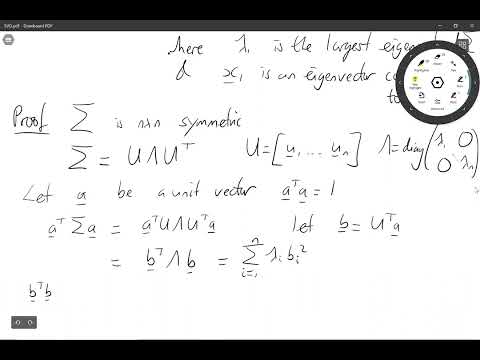 SVD.pdf - Drawboard PDF
here λ₁ is the largest
& x₁ is an eigenvector
Proof Σ is n×n symmetric
Σ = UΛUᵀ U = [u₁ ... uₙ] Λ = diag(λ₁ 0 0 λₙ)
Let a be a unit vector aᵀa = 1
aᵀΣa = aᵀUΛUᵀa let b = Uᵀa
= bᵀΛb = Σᵢ₌₁ⁿ λᵢbᵢ²
bᵀb